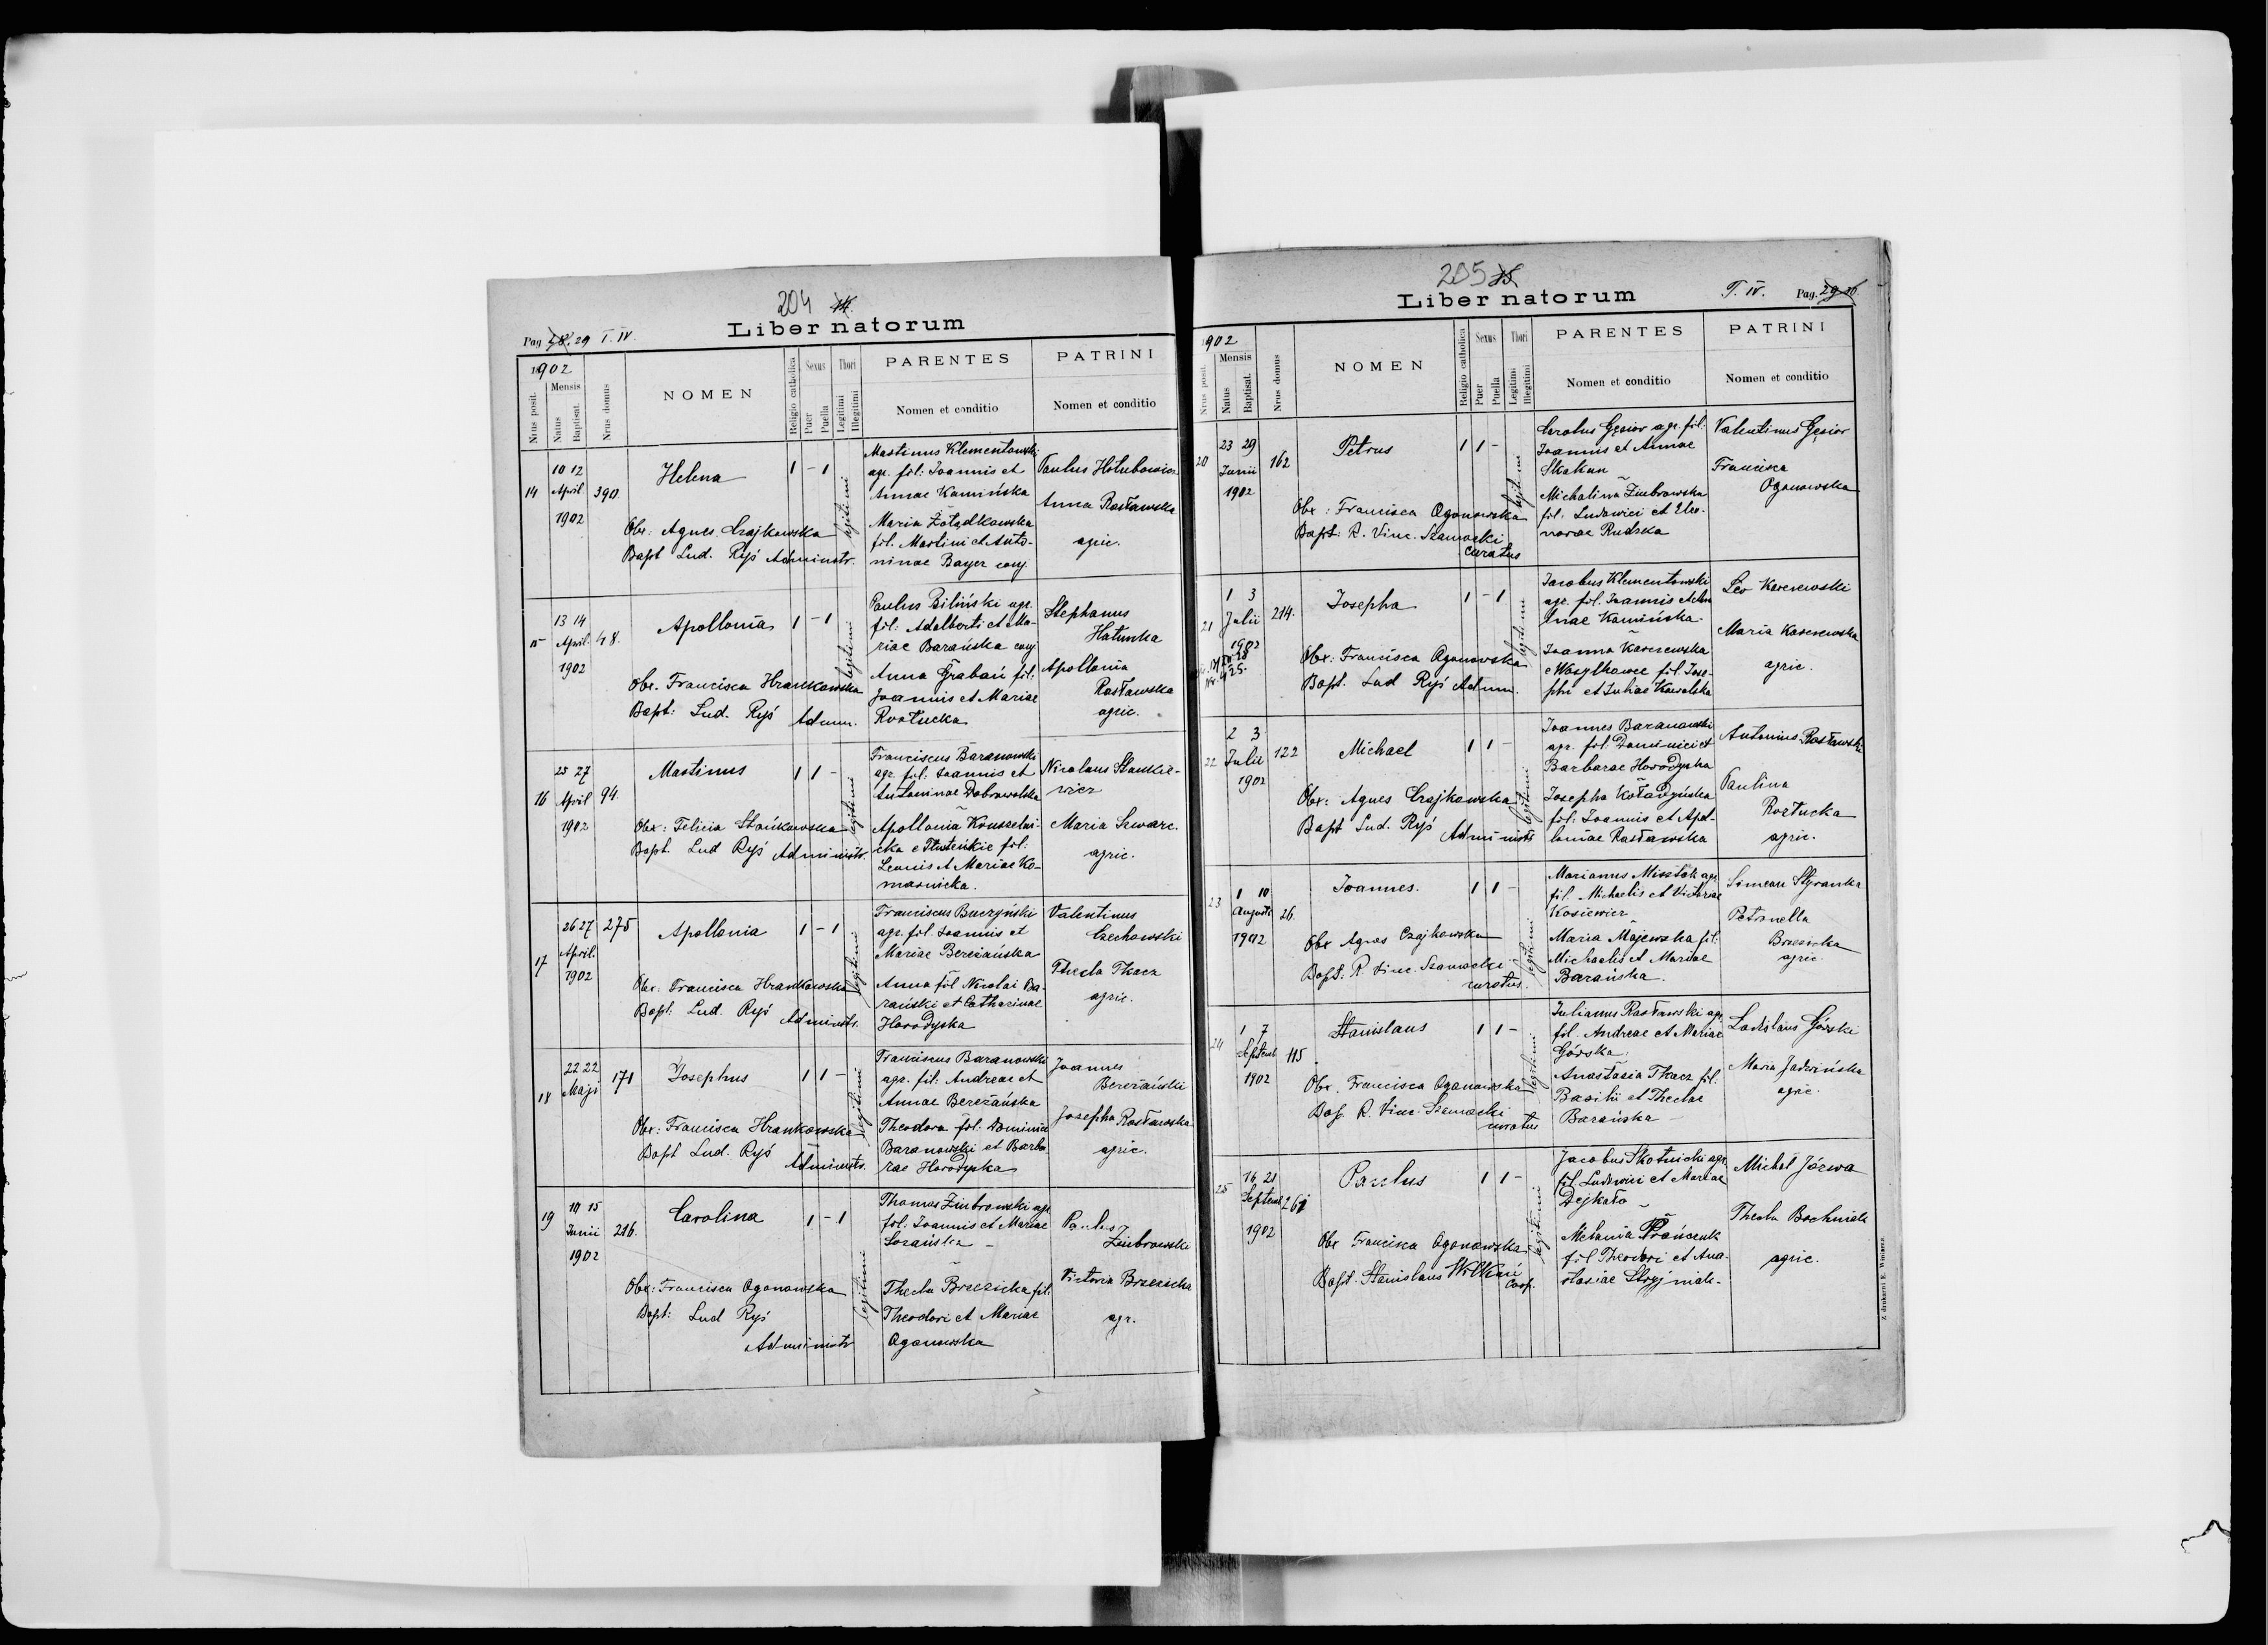 204 14.
Liber natorum
Pag 28. 29 T. IV.
1902
Nrus posit.
Mensis
Natus
Baptisat.
Nrus domus
NOMEN
Religio catholica
Sexus
Puer
Puella
Thori
Legitimi
Illegitimi
PARENTES
Nomen et conditio
PATRINI
Nomen et conditio
14
10 12
April
1902
390
Helena
1 - 1
legitimi
Obx: Agnes Czajkowska
Bapt Lud. Ryś Administr.
Martinus Klementowski
agr. fil. Joannis et
Annae Kamińska
Maria Żołądkowska
fil. Martini et Anto-
ninae Bayer conj.
Paulus Hołubowicz
Anna Rosławska
agric.
15
13 14
April.
1902
48.
Apollonia
1 - 1
legitimi
Obx. Francisca Hrankowska
Bapt: Lud. Ryś Admin.
Paulus Biliński agr.
fil: Adalberti et Ma-
riae Barańska conj
Anna Grabań fil.
Joannis et Mariae
Roztucka
Stephanus
Hatunka
Apollonia
Rosławska
agric.
16
25 27
April
1902
94.
Martinus
1 1 -
legitimi
Obx: Felicia Stańkowska
Bapt. Lud Ryś Administr.
Franciscus Baranowski
agr. fil: Joannis et
Antoninae Dobrowolska
Apollonia
fil:
Leonis et Mariae Ko-
marnicka.
Nicolaus Stankie-
wicz
Maria Szwarc.
agric.
17
26 27
April.
1902
275
Apollonia
1 - 1
legitimi
Obx: Francisca Hrankowska
Bapt: Lud. Ryś Administr.
Franciscus Buczyński
agr. fil. Joannis et
Mariae Bereżańska
Anna fil Nicolai Ba-
rański et Catharinae
Horodyska
Valentinus
Czechowski
Thecla Tkacz
agric.
18
22 22
Maji
171
Josephus
1 1 -
legitimi
Obx: Francisca Hrankowska
Bapt Lud. Ryś Administr.
Franciscus Baranowski
agr. fil: Andreae et
Annae Bereżańska
Theodora fil. Dominici
Baranowski et Barba
rae Horodyska
Joannes
Bereżański
Josepha Rosławska
agric.
19
10 15
Junii
1902
216.
Carolina
1 - 1
legitimi
Obx: Francisca Oganowska
Bapt: Lud Ryś
Administr
Thomas Zimbrowski agr
fil: Joannis et Mariae
Thecla Brzezicka fil.
Theodori et Mariae
Oganowska
Paulus
Zimbrowski
Victoria Brzezicka
agr.
205 15.
Liber natorum
T. IV. Pag. 29
1902
Nrus posit.
Mensis
Natus
Baptisat.
Nrus domus
NOMEN
Religio catholica
Sexus
Puer
Puella
Thori
Legitimi
Illegitimi
PARENTES
Nomen et conditio
PATRINI
Nomen et conditio
20
23 29
Junii
1902
162
Petrus
1 1 -
legitimi
Obx: Francisca Oganowska
Bapt: R. Vinc. Szamocki
curatus
Carolus Gęsior agr. fil.
Joannis et Annae
Skakun
Michalina Zimbrowska
fil. Ludovici et Eleo-
norae Rudzka
Valentinus Gęsior
Francisca
Oganowska
21
1 3
Julii
1902
214.
Josepha
1 - 1
legitimi
Obx: Francisca Oganowska
Bapt. Lud Ryś Admin.
Jacobus Klementowski
agr. fil. Joannis et An
nae Kamińska
Joanna Karczewska
e Wasylkowce fil. Jose-
phi et Juliae Kowalska
Leo Karczewski
Maria Karczewska
agric.
22
2 3
Julii
1902
122
Michael
1 1 -
legitimi
Obx: Agnes Czajkowska
Bapt Lud. Ryś
Administr
Joannes Baranowski
agr. fil: Dominici et
Barbarae Horodyska
Josepha Koładyńska
fil. Joannis et Apol-
loniae Rosławska
Antonius Rosławski
Paulina
Roztucka
agric.
23
1 10
Augusti
1902
26.
Joannes.
1 1 -
legitimi
Obx Agnes Czajkowska
Bapt: R. Vinc. Szamocki
curatus.
Marianus Misztak agr.
fil. Michaelis et Victoriae
Kosiewicz
Maria Majewska fil.
Michaelis et Mariae
Barańska.
Simeon Styranka
Petronella
Brzezicka
agric.
24
1 7
Septemb
1902
115
Stanislaus
1 1 -
legitimi
Obx. Francisca Oganowska
Bap. R. Vinc. Szamocki
curatus
Julianus Rosławski agr.
fil. Andreae et Mariae
Górska
Anastasia Tkacz fil.
Basilii et Theclae
Barańska
Ladislaus Górski
Maria Jadzińska
agric.
25
16 21
Septemb
1902
261
Paulus
1 1 -
legitimi
Obx Francisca Oganowska
Bapt. Stanislaus
Coop.
Jacobus Skotnicki agr.
fil. Ludovici et Mariae
Dejkało
Melania
fil Theodori et Ana-
stasiae
Michal Józwa
Thecla Bochniak
agric.
Z drukarni E. Winiarza.